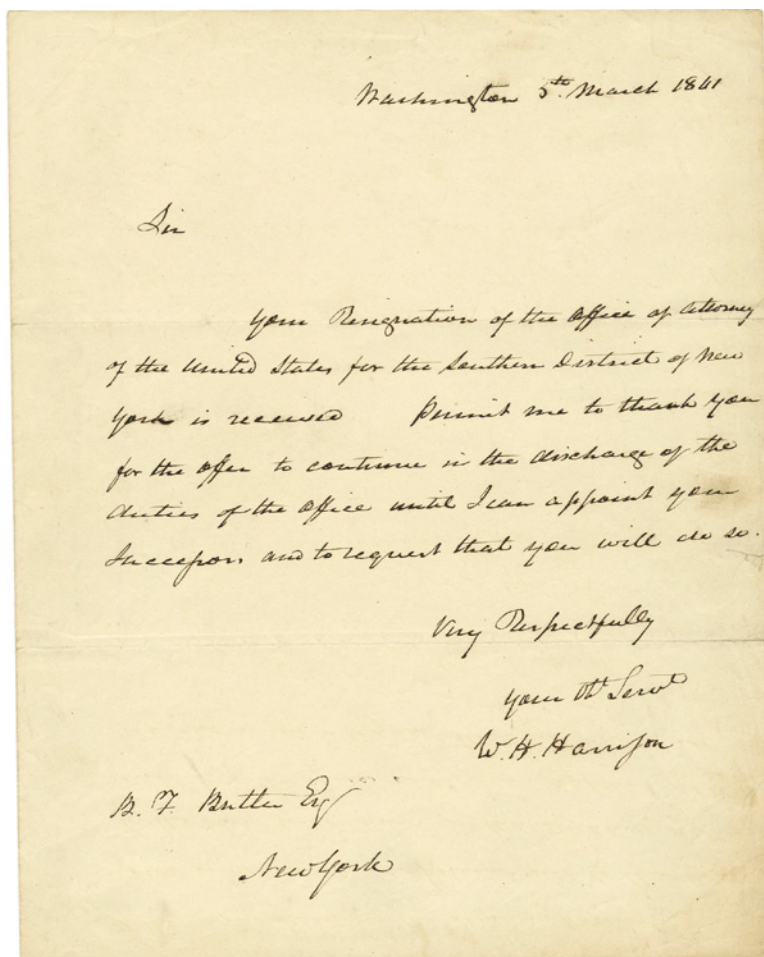 Washington 5th. March 1841
Sir
Your Resignation of the office of Attorney
of the United States for the Southern District of New
York is received Permit me to thank you
for the offer to continue in the discharge of the
duties of the office until I can appoint your
Successor and to request that you will do so.
Very Respectfully
Your Obt Servt
W. H. Harrison
B. F. Butler Esq
New York